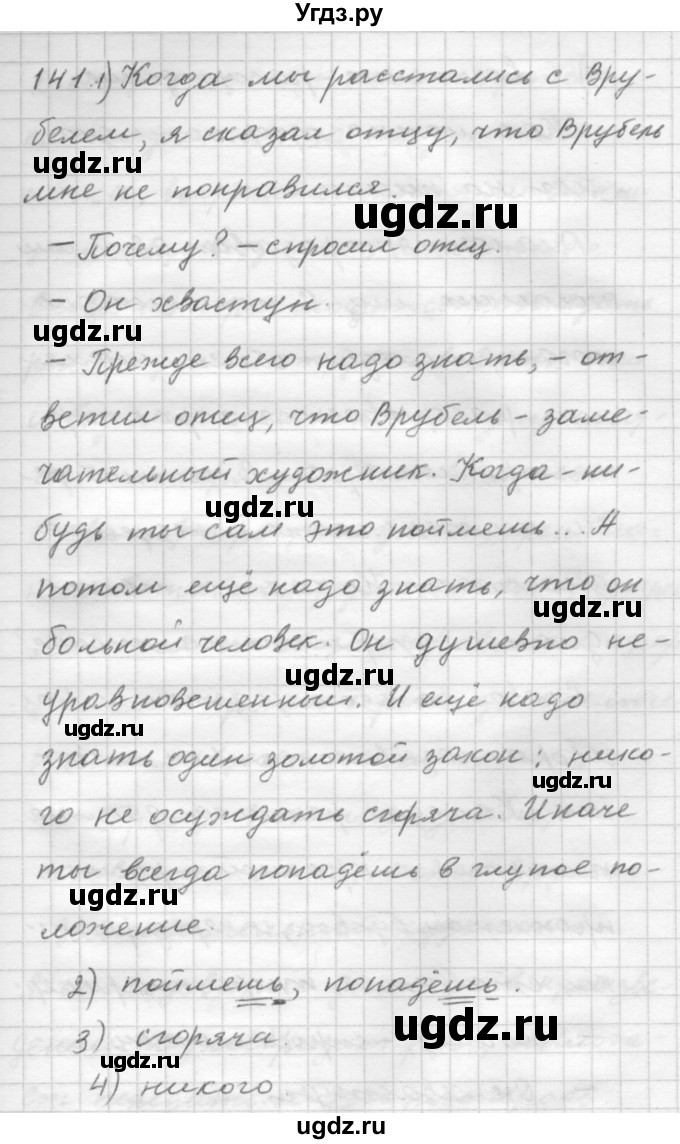 Угдз.ру
141.1) Когда мы расстались с Вру-
белем, я сказал отцу, что Врубель
ugdz.ru
мне не понравился.
ugdz.ru
– Почему? – спросил отец.
– Он хвастун.
ugdz.ru
– Прежде всего надо знать, – от-
ветил отец, что Врубель – заме-
чательный художник. Когда-ни-
ugdz.ru
будь ты сам это поймешь... А
потом ещё надо знать, что он
ugdz.ru
больной человек. Он душевно не-
ugdz.ru
уравновешенный. И ещё надо
ugdz.ru
знать один золотой закон: нико-
ugdz.ru
го не осуждать сгоряча. Иначе
ты всегда попадёшь в глупое по-
ugdz.ru
ложение.
2) поймешь, попадёшь.
ugdz.ru
3) сгоряча.
ugdz.ru
4) никого
ugdz.ru